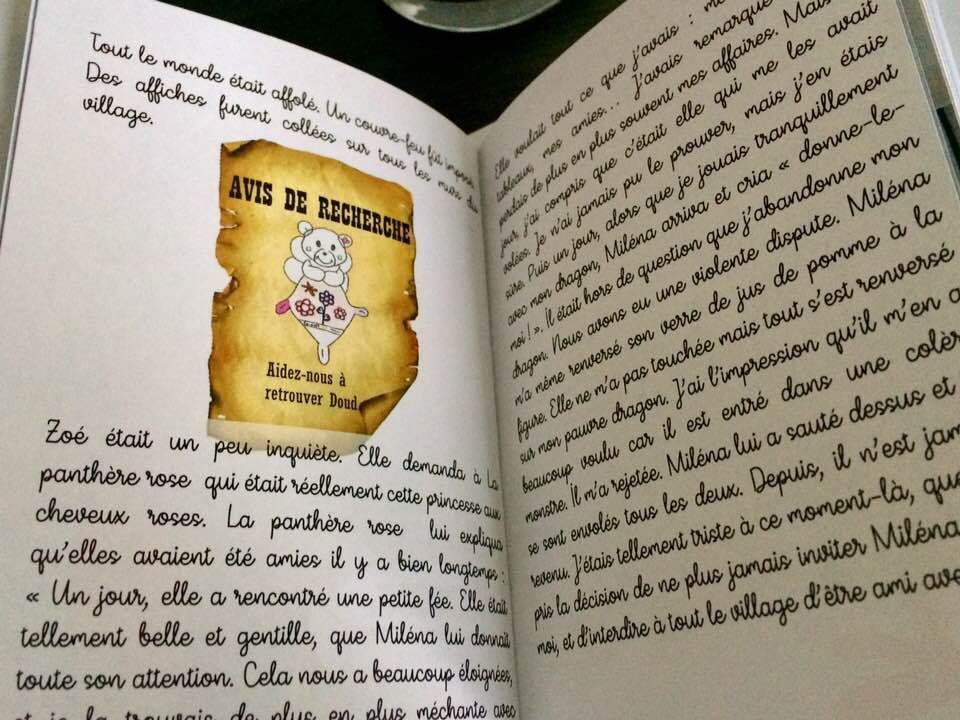 Tout le monde était affolé. Un couvre-feu fût imposé.
Des affiches furent collées sur tous les murs du
village.
AVIS DE RECHERCHE
Aidez-nous à
retrouver Doud
Zoé était un peu inquiète. Elle demanda à La
panthère rose qui était réellement cette princesse aux
cheveux roses. La panthère rose lui expliqua
qu'elles avaient été amies il y a bien longtemps :
« Un jour, elle a rencontré une petite fée. Elle était
tellement belle et gentille, que Miléna lui donnait
toute son attention. Cela nous a beaucoup éloignées,
et je la trouvais de plus en plus méchante avec
Elle voulait tout ce que j'avais :
tableaux, mes amies... J'avais remarqué
perdais de plus en plus souvent mes affaires. Mais
jour, j'ai compris que c'était elle qui me les avait
volées. Je n'ai jamais pu le prouver, mais j'en étais
sûre. Puis un jour, alors que je jouais tranquillement
avec mon dragon, Miléna arriva et cria « donne-le-
moi ! ». Il était hors de question que j'abandonne mon
dragon. Nous avons eu une violente dispute. Miléna
m'a même renversé son verre de jus de pomme à la
figure. Elle ne m'a pas touchée mais tout s'est renversé
sur mon pauvre dragon. J'ai l'impression qu'il m'en a
beaucoup voulu car il est entré dans une colèr
monstre. Il m'a rejetée. Miléna lui a sauté dessus et
se sont envolés tous les deux. Depuis, il n'est jam
revenu. J'étais tellement triste à ce moment-là, que
pris la décision de ne plus jamais inviter Miléna
moi, et d'interdire à tout le village d'être ami ave